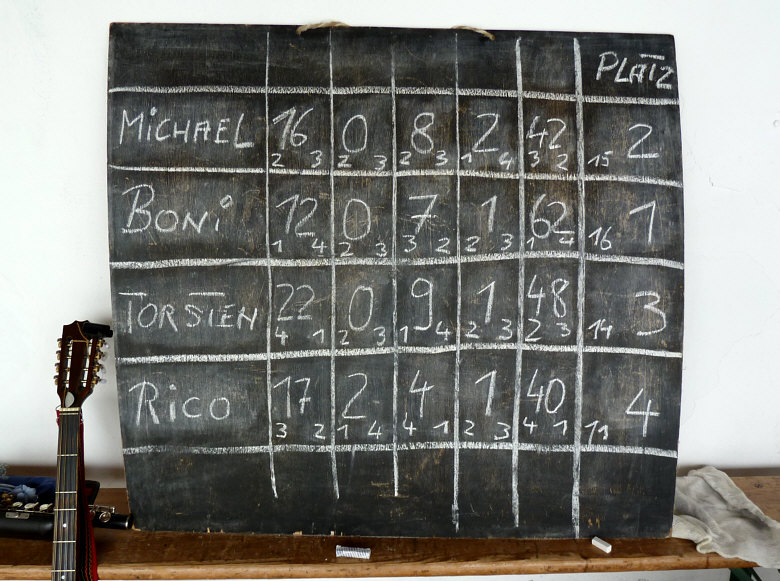 PLATZ
MICHAEL 16 0 8 2 42 2
2 3 2 3 2 3 1 4 3 2 15
BONI 12 0 7 1 62 1
1 4 2 3 3 2 2 3 1 4 16
TORSTEN 22 0 9 1 48 3
4 1 2 3 1 4 2 3 2 3 14
RICO 17 2 4 1 40 4
3 2 1 4 4 1 2 3 4 1